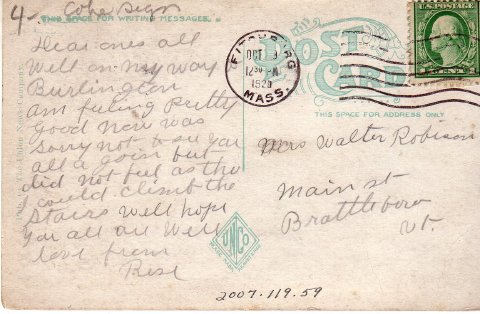 4
Coke Sign
THIS SPACE FOR WRITING MESSAGES.
Dear ones all
Well on my way
Burlington
Am feeling Pretty
Good now was
Sorry not to see you
all a goin but
did not feel as tho
I could climb the
Stairs well hope
you all are well
love from
FITCHBURG
OCT
12 30 PM
1920
MASS.
POST
CARD
U.S. POSTAGE
THIS SPACE FOR ADDRESS ONLY
Mrs Walter Robinson
Main st
Brattleboro
Vt.
UNCO
2007.119.59